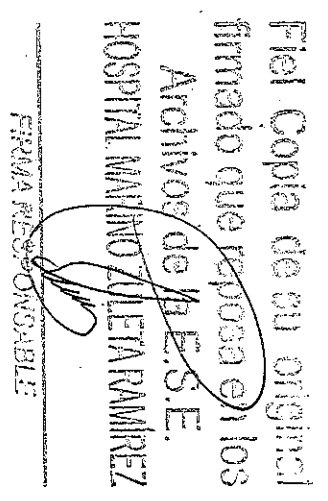 Fiel Copia de su original
firmado que reposa en los
Archivos de la E.S.E.
HOSPITAL MARINO ZULETA RAMIREZ
FIRMA RESPONSABLE